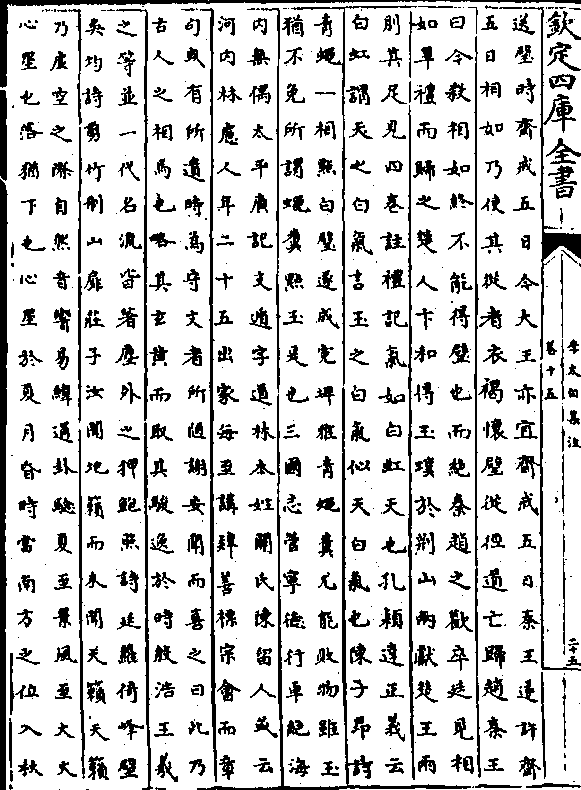 欽定四庫全書
李太白集注
卷十五
二十五
送璧時齋戒五日今大王亦宜齋戒五日秦王遂許齋
五日相如乃使其從者衣褐懷璧從徑道亡歸趙秦王
曰今殺相如終不能得璧也而絶秦趙之歡卒廷見相
如畢禮而歸之楚人卞和得玉璞於荆山兩獻楚王兩
刖其足見四卷註禮記氣如白虹天也孔穎達正義云
白虹謂天之白氣言玉之白氣似天白氣也陳子昂詩
青蠅一相點白璧遂成寃埤雅青蠅糞尤能敗物雖玉
猶不免所謂蠅糞點玉是也三國志管寧德行卓絶海
内無偶太平廣記支遁字道林本姓關氏陳留人或云
河内林慮人年二十五出家每至講肄善標宗會而章
句或有所遺時為守文者所陋謝安聞而喜之曰此乃
古人之相馬也略其玄黄而取其駿逸於時殷浩王羲
之等並一代名流皆著塵外之狎鮑照詩延蘿倚峰壁
吳均詩剪竹制山扉莊子汝聞地籟而未聞天籟天籟
乃虛空之際自然音響易緯通卦驗夏至景風至大火
心星也落猶下也心星於夏月昏時當南方之位入秋